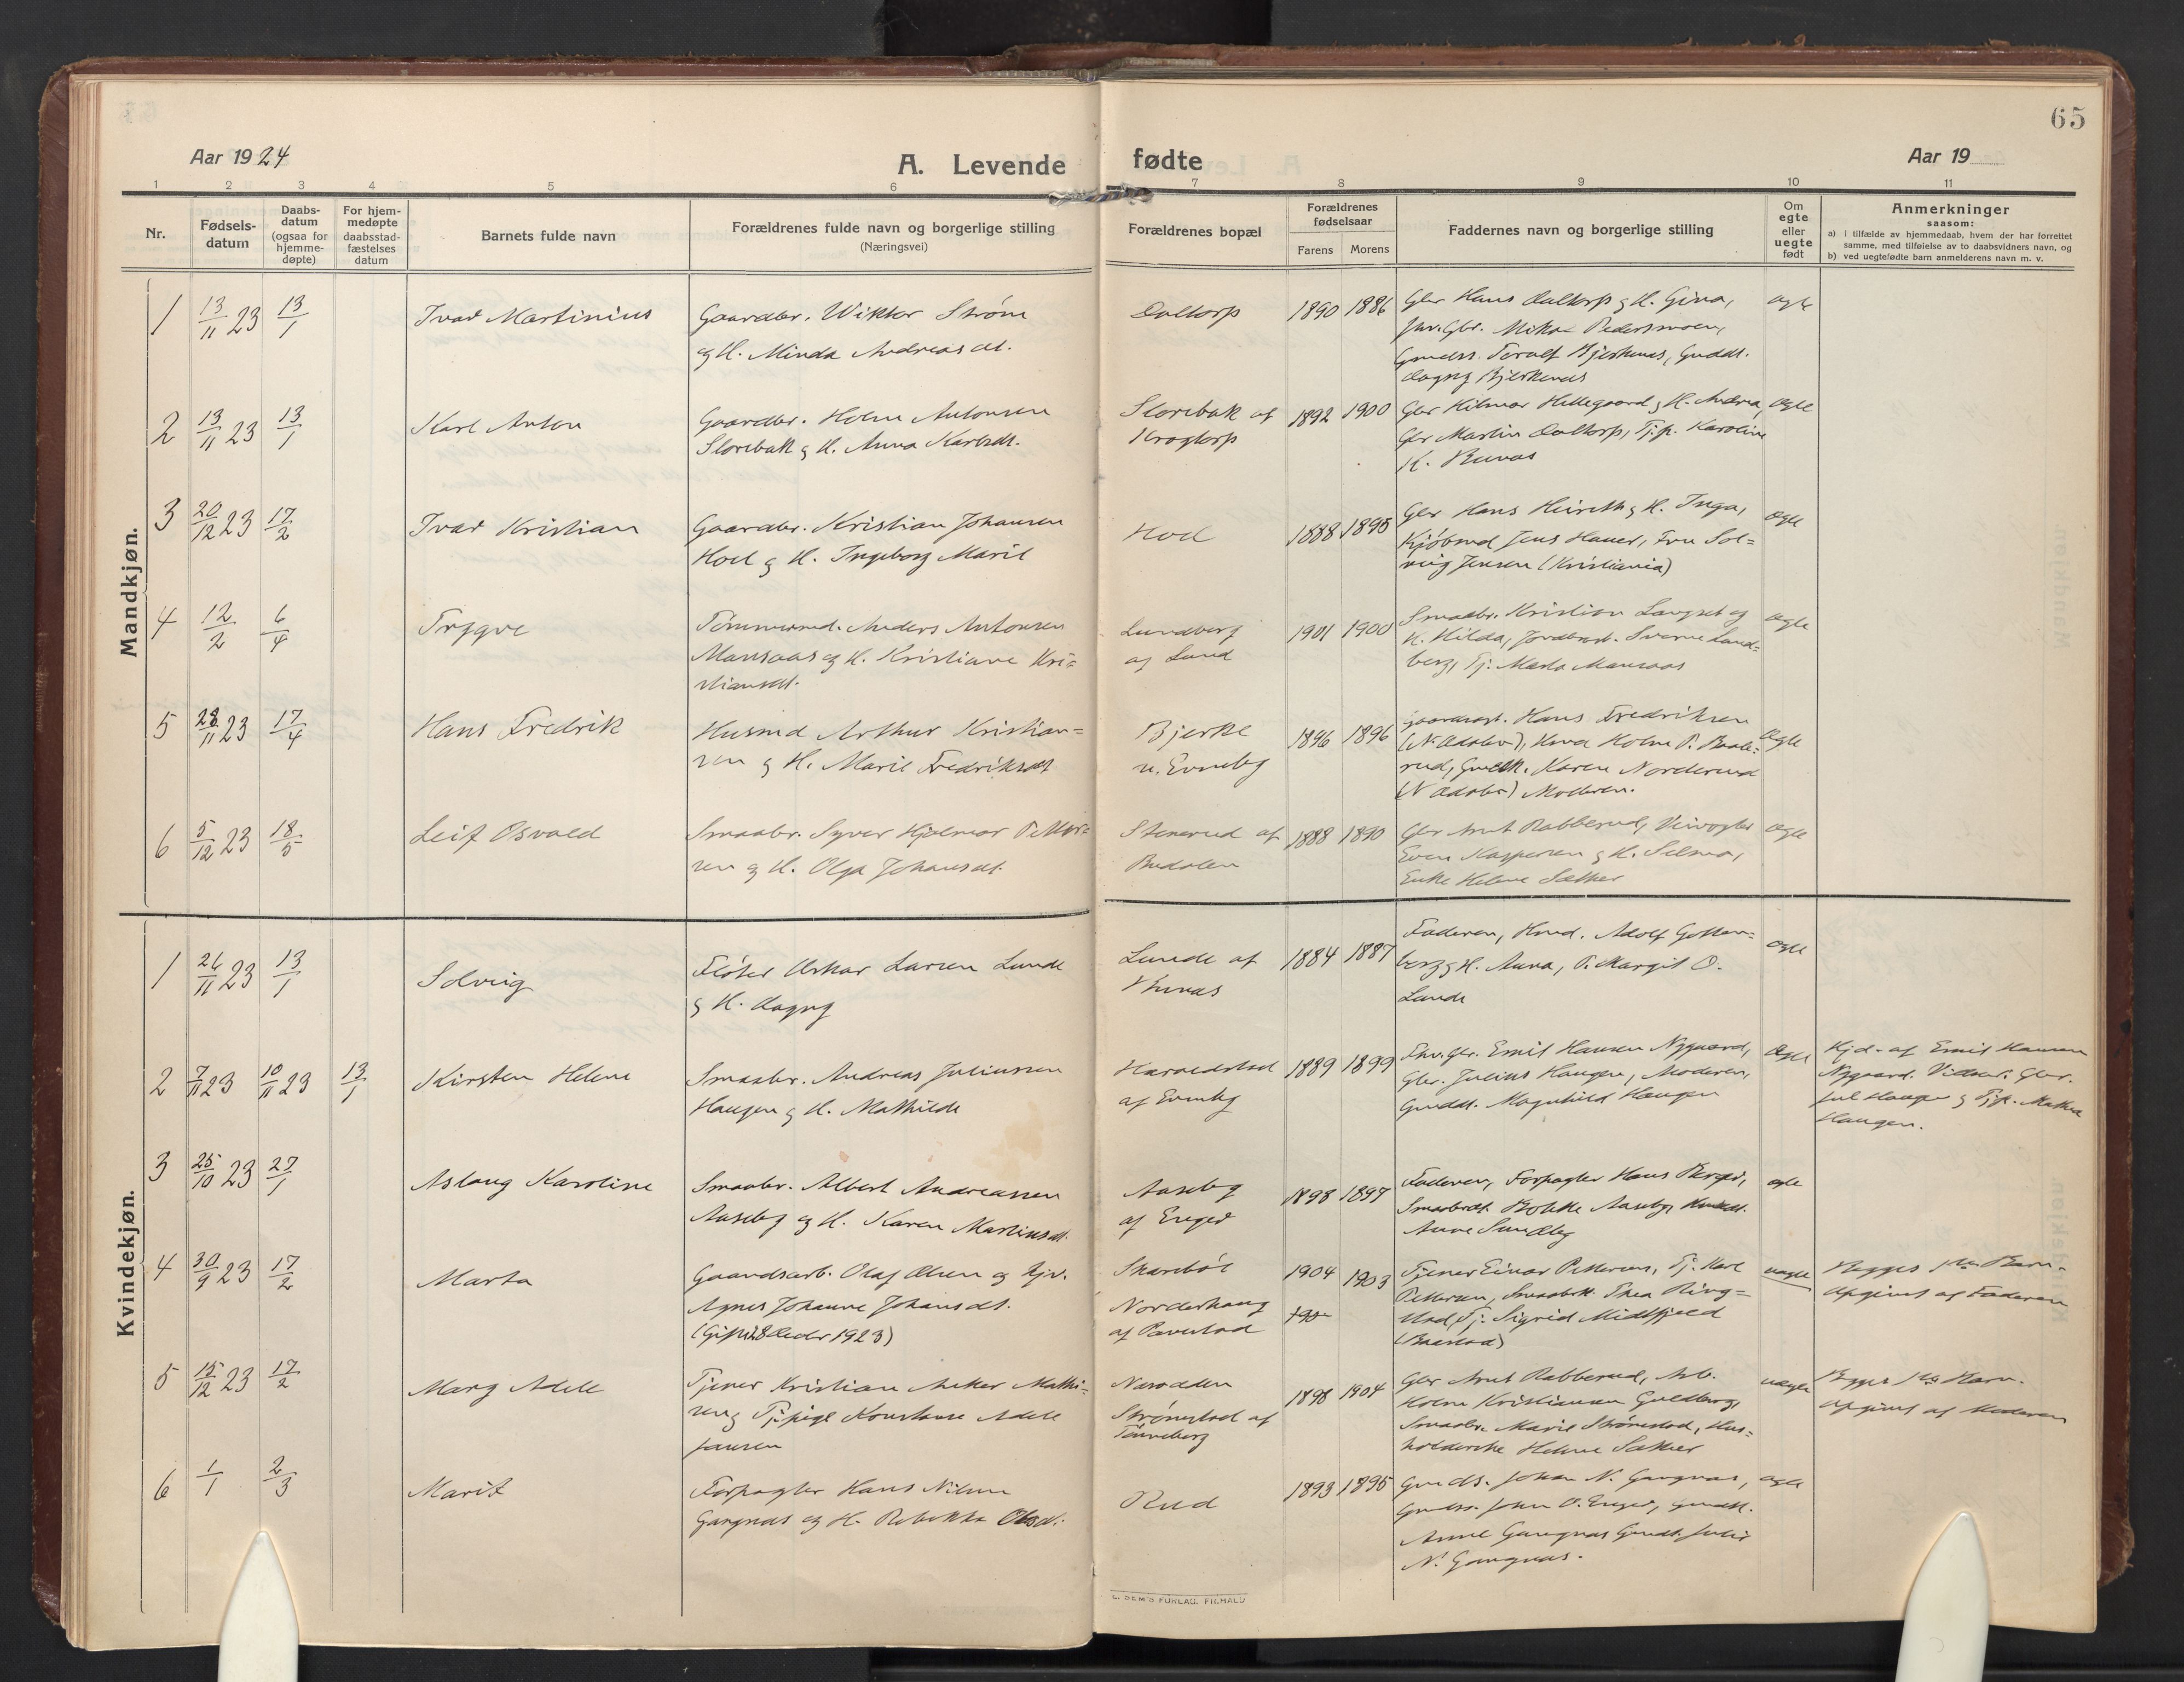 65
Aar 1924
A. Levende
fødte
Aar 19
1 2 3 4 5 6 7 8 9 10 11
Nr.
Fødsels-
datum
Daabs-
datum
(ogsaa for
hjemme-
døpte)
For hjem-
medøpte
daabsstad-
fæstelses
datum
Barnets fulde navn
Forældrenes fulde navn og borgerlige stilling
(Næringsvei)
Forældrenes bopæl
Forældrenes
fødselsaar
Farens Morens
Faddernes navn og borgerlige stilling
Om
egte
eller
uegte
født
Anmerkninger
saasom:
a) i tilfælde av hjemmedaab, hvem der har forrettet
samme, med tilføielse av to daabsvidners navn, og
b) ved uegtefødte barn anmelderens navn m. v.
Mandkjøn.
1 13/11 23 13/1
Ivar Martinius
Gaardbr. Wiktor Strøm
og H. Minda Andreasdt.
Daltorp
1890 1886
Gbr Hans Daltorp og H. Gina,
Pedersmoen,
Bjerkenes
Dagny Bjerkenes
egte
2 13/11 23 13/1
Karl Anton
Gaardbr. Holm Antonsen
Slorebak og H. Anna Karlsdt.
Slorebak af
Krogtorp
1892 1900
Gbr Hilmar Hellegaard og H.
Gbr Martin Daltorp, Tj.p. Karoline
K.
egte
3 20/12 23 17/2
Ivar Kristian
Gaardbr. Kristian Johansen
Hoel og H. Ingeborg Marie
Hoel
1888 1895
Gbr Hans og H. Inga,
Jens Fru Sol=
veig Jensen (Kristiania)
egte
4 12/2 6/4
Trygve
Tømmermd. Anders Antonsen
Mansaas og H. Kristiane Kri=
stiansdt.
Lundberg
af Lund
1901 1900
Smaabr. Kristian Langset og
H. Hilda, Sverre Lund=
berg, Tj. Marta Mansaas
egte
5 28/11 23 17/4
Hans Fredrik
Husmd Arthur Kristian=
sen og H. Marie Fredriksdt
Bjerke
u. Evenby
1896 1896
Hans Fredriksen
Holm P.
rud, Karen Norderud
Moderen.
egte
6 5/12 23 18/5
Leif Osvald
Smaabr. Syver Hjalmar Petter=
sen og H. Olga Johansdt.
Stenerud af
Budalen
1888 1890
Gbr Arnt Rabberud, Veivogter
Even Kaspersen og H. Selma,
Enke Helene Sæther
egte
Kvindekjøn.
1 26/11 23 13/1
Solveig
Fløter Oskar Larsen Lunde
og H. Dagny
Lunde af
1884 1887
Faderen, Hmd. Adolf Gotten=
berg og H. Anna, P. Margit O.
Lunde
egte
2 7/11 23 10/11 23 13/1
Kirsten Helene
Smaabr. Andreas Juliussen
Haugen og H. Mathilde
Haraldstad
af Evenby
1889 1899
Fhv. Gbr. Emil Hansen Nygaard,
Gbr. Julius Haugen, Moderen,
Gmddt. Magnhild Haugen
egte
Hjd. af Emil Hansen
Nygaard. Vidner: Gbr.
Jul Haugen og Tjp.
Haugen.
3 25/10 23 27/1
Aslaug Karoline
Smaabr. Albert Andreassen
Aaseby og H. Karen Martinsdt.
Aaseby
af Enger
1898 1897
Faderen, Forpagter Hans Berger,
Aaseby,
Anne Sundby
egte
4 30/9 23 17/2
Marta
Gaardsarb. Olaf Olsen og Kjv.
Agnes Johanne Johansdt.
(Gift 28 Decbr 1923)
Skarebøl
Norderhaug
af
1904 1903
Tjener Einar Pettersen, Tj. Karl
Pettersen, Thea Ring=
stad, Tj. Sigrid Midtfjeld
uegte
Begges 1ste Barn.
Opgivet af Faderen
5 15/12 23 17/2
Mary Adele
Tjener Kristian Anker Mathi=
sen og Tj.pige Konstanse Adele
Jansen
Naredden
Strømstad af
Tønneberg
1898 1904
Gbr Arnt Rabberud, Arb.
Holm Kristiansen Guldberg,
Smaabr. Marie Strømstad, Hus=
holderske Helene Sæther
uegte
Begges 1ste Barn.
Opgivet af Moderen
6 1/1 2/3
Marit
Forpagter Hans Nilsen
Gangnæs og H. Rebekka Olsdt.
Rud
1893 1895
Gmds. Johan N. Gangnæs,
Gmdss. John O. Enger, Gmddt.
Anne Gangnæs Gmdt. Julie
N. Gangnæs.
egte
E. SEM'S FORLAG. FR.HALD